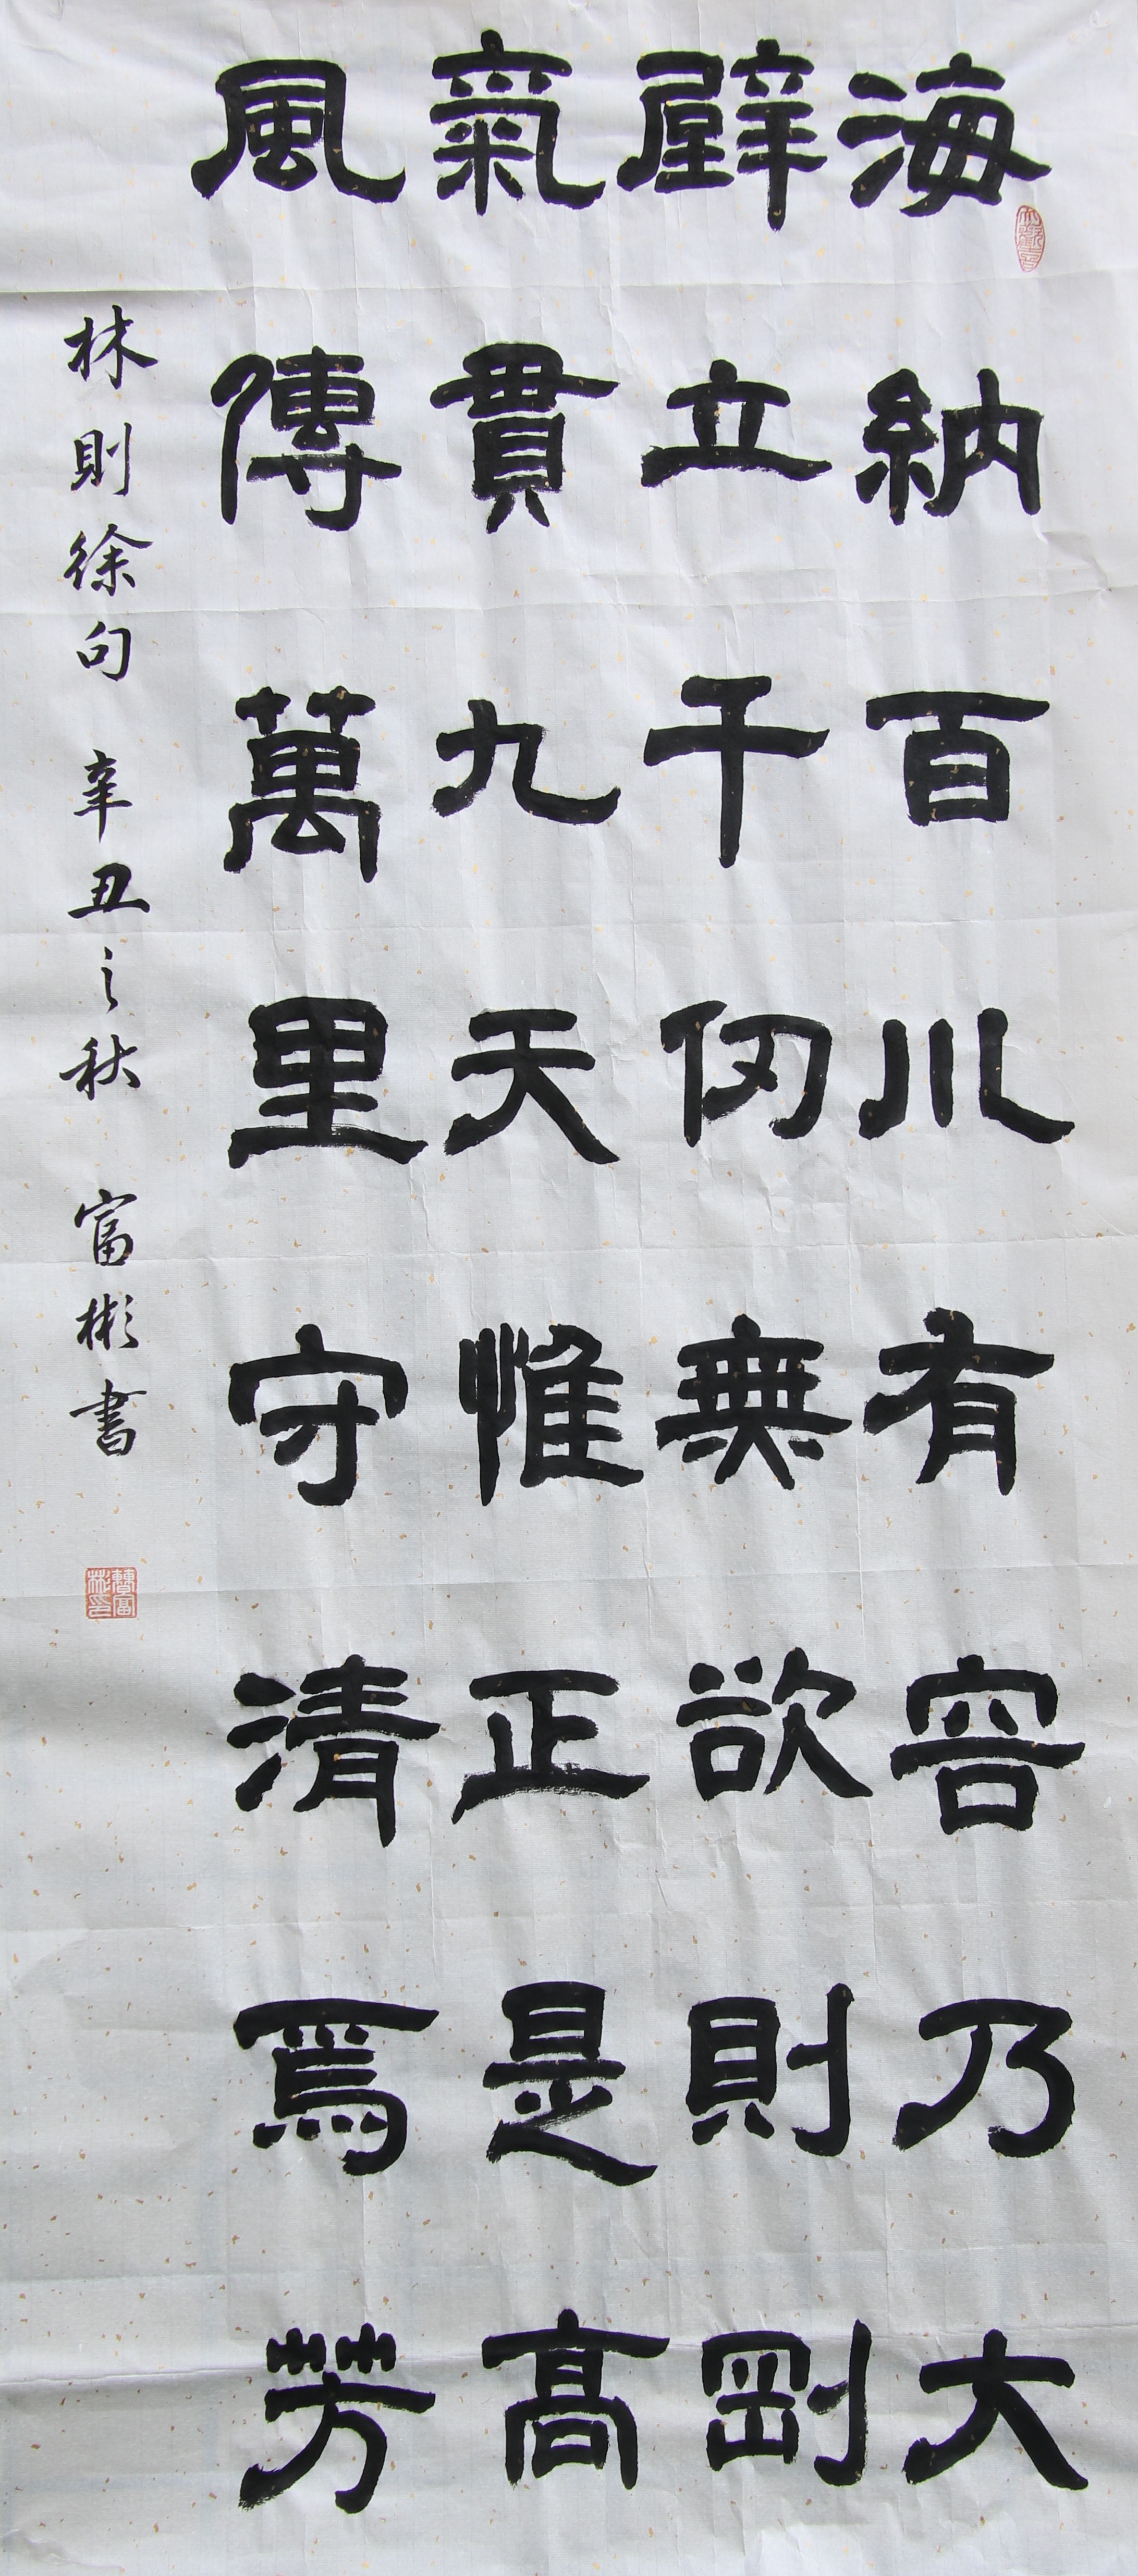 海納百川有容乃大
壁立千仞無欲則剛
氣貫九天惟正是高
風傳萬里守清為芳
林則徐句 辛丑之秋 富彬書